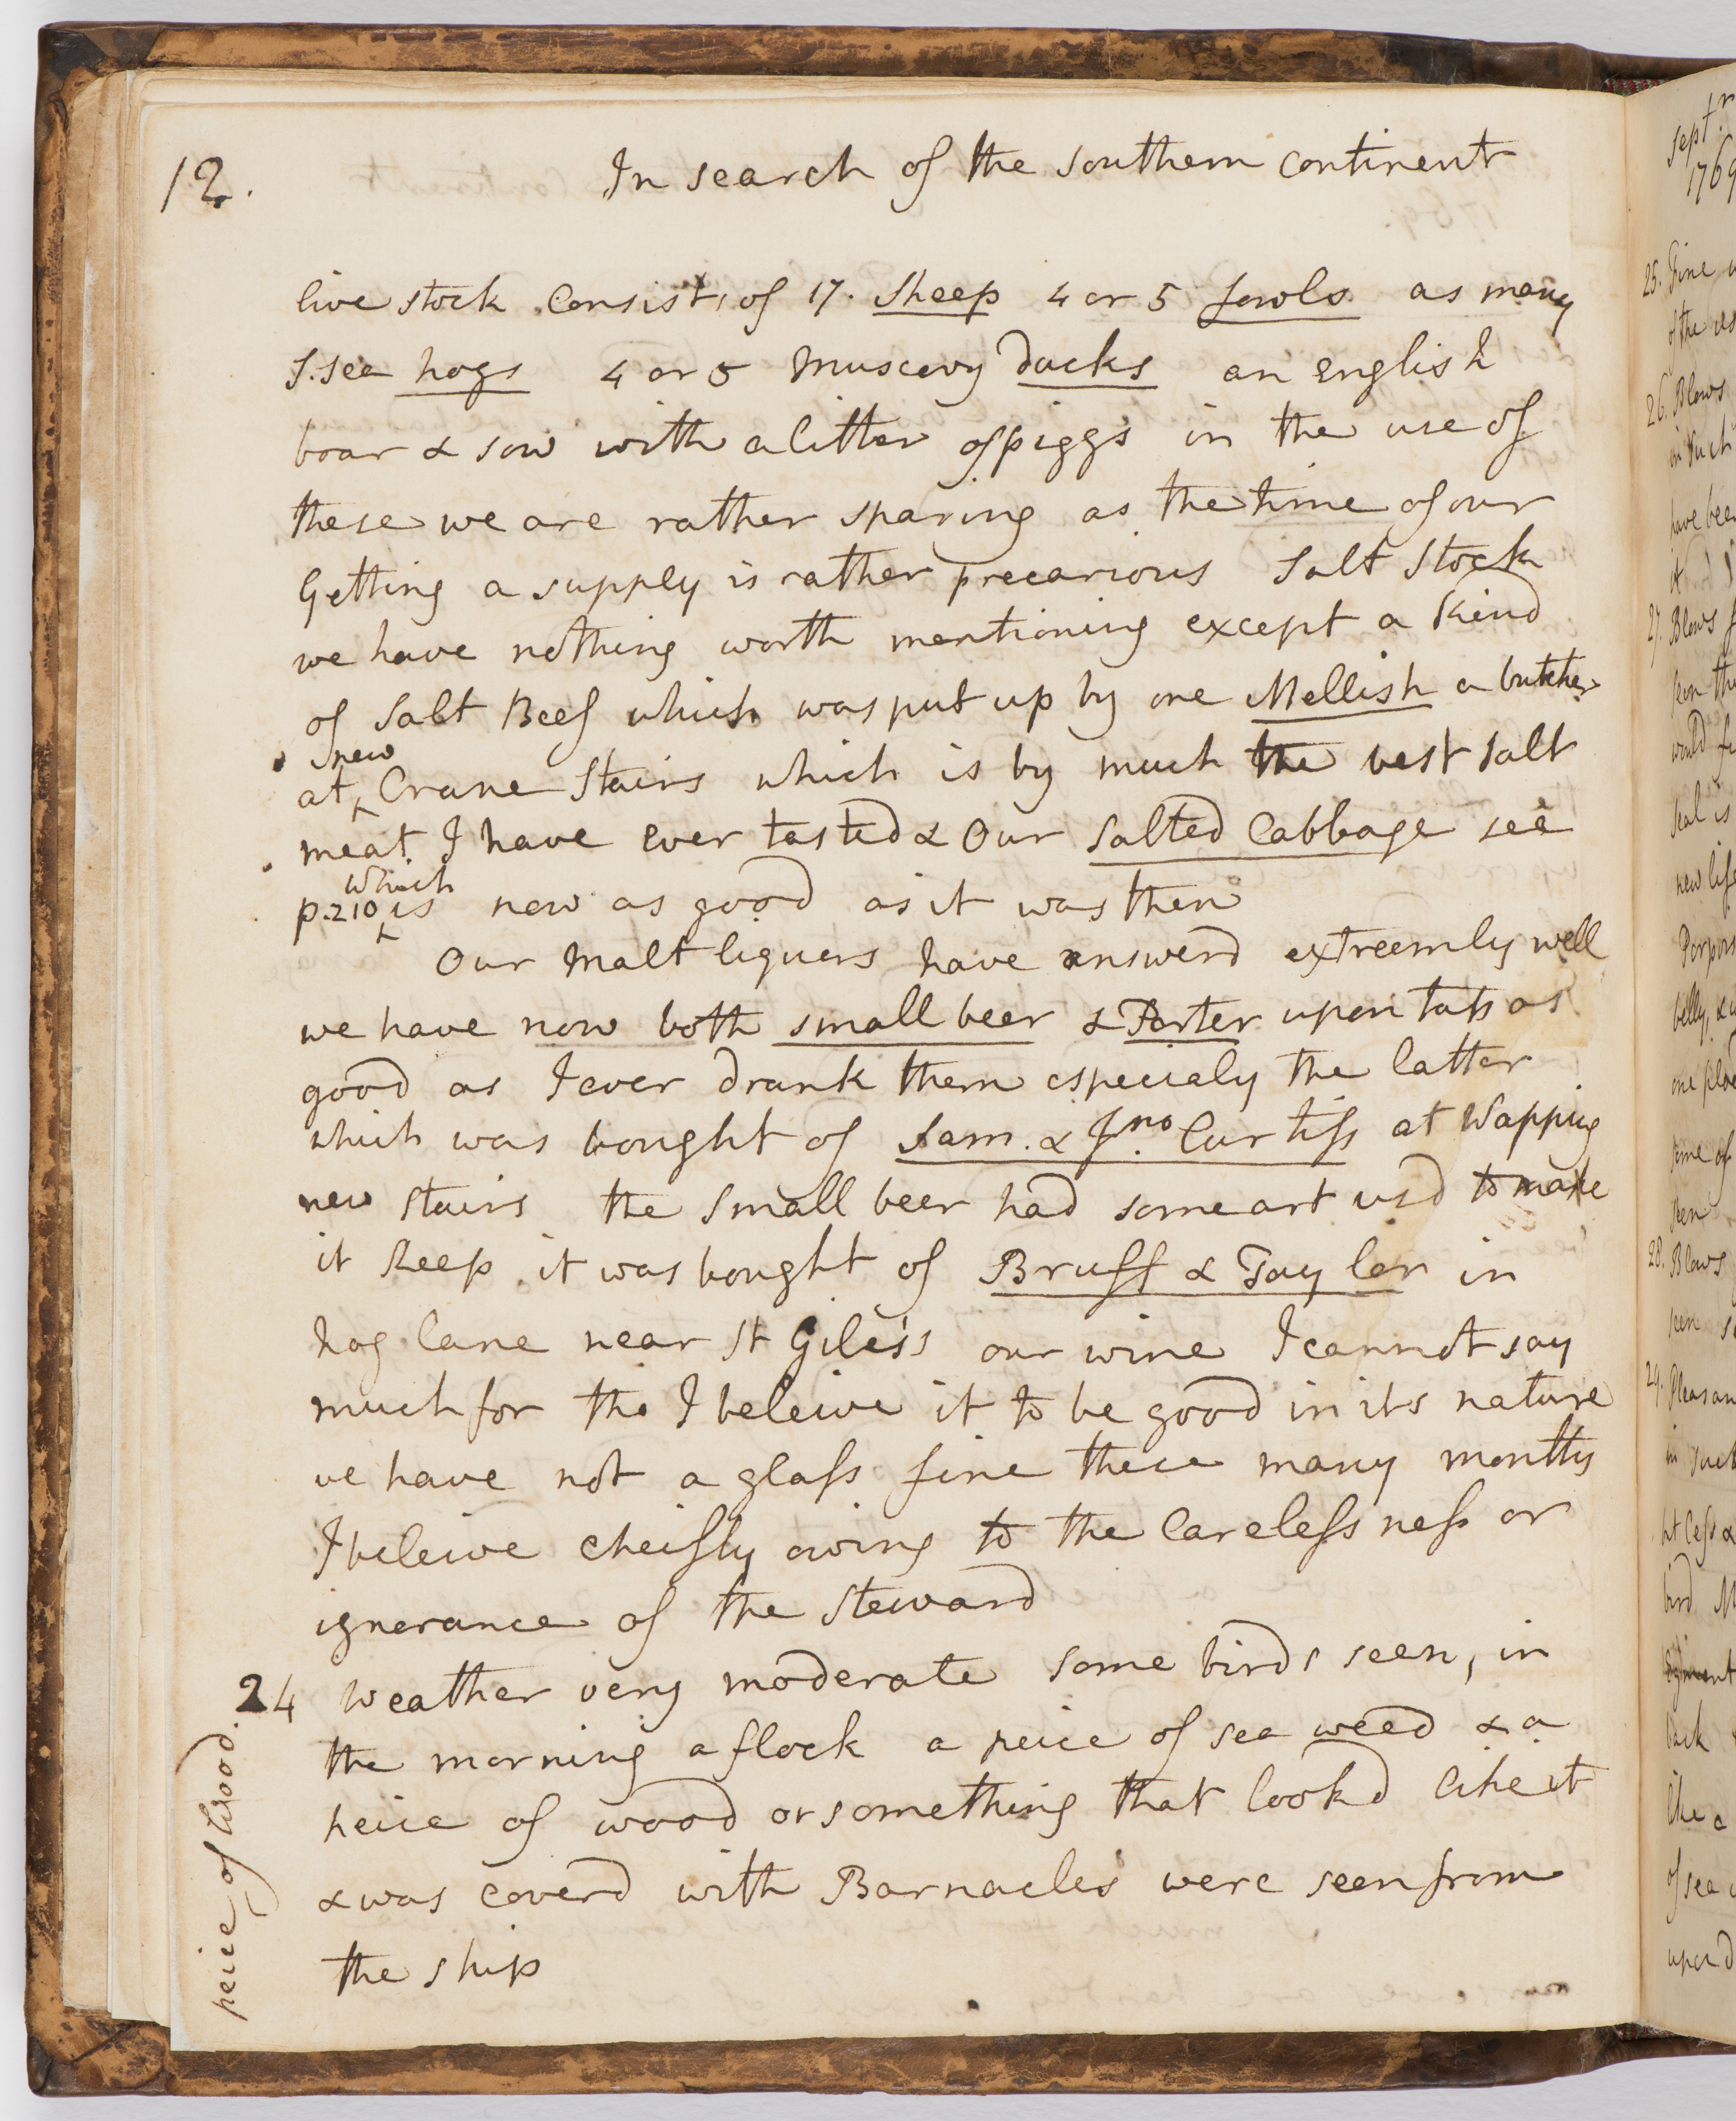 12. In search of the southern continent
live stock consists of 17. Sheep 4 or 5 fowls as many
S. sea hogs 4 or 5 Muscovy ducks an English
boar & sow with a litter of piggs in the use of
these we are rather sparing as the time of our
Getting a supply is rather precarious Salt Stock
we have nothing worth mentioning except a kind
of Salt Beef which was put up by one Mellish a butcher
at new Crane Stairs which is by much the best salt
meat I have ever tasted & Our salted Cabbage see
p. 210 which is now as good as it was then
Our Malt liquers have answerd extreemly well
we have now both small beer & Porter upon tap as
good as I ever drank them especialy the latter
which was bought of Sam. & Jno. Curtiss at Wapping
new stairs the Small beer had some art usd to make
it keep it was bought of Bruff & Taylor in
hog lane near St Giles's our wine I cannot say
much for tho I beleive it to be good in its nature
we have not a glass fine these many months
I beleive cheifly owing to the Carelessness or
ignorance of the Steward
24 Weather very moderate some birds seen, in
the morning a flock a peice of sea weed & a
peice of wood or something that lookd like it
& was coverd with Barnacles were seen from
the ship
peice of Wood.
Sept.r
1769
25. Fine
of the
26. Blows
in such
have been
it
27. Blows
seen the
would
seal is
new life
Porpois
belly, &
one place
some of
seen
28. Blows
seen
29. Pleasan
in such
& 
bird
back
like a
of sea
upon